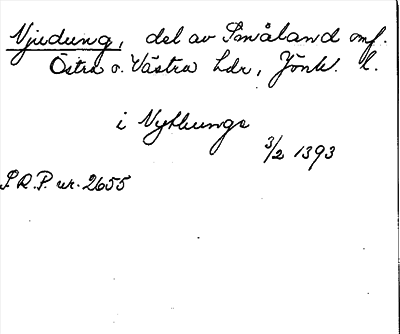 Njudung, del av Småland omf.
Östra o. Västra hdr, Jönk. l.
i Nythunge
3/2 1393
S.R.P. nr. 2655